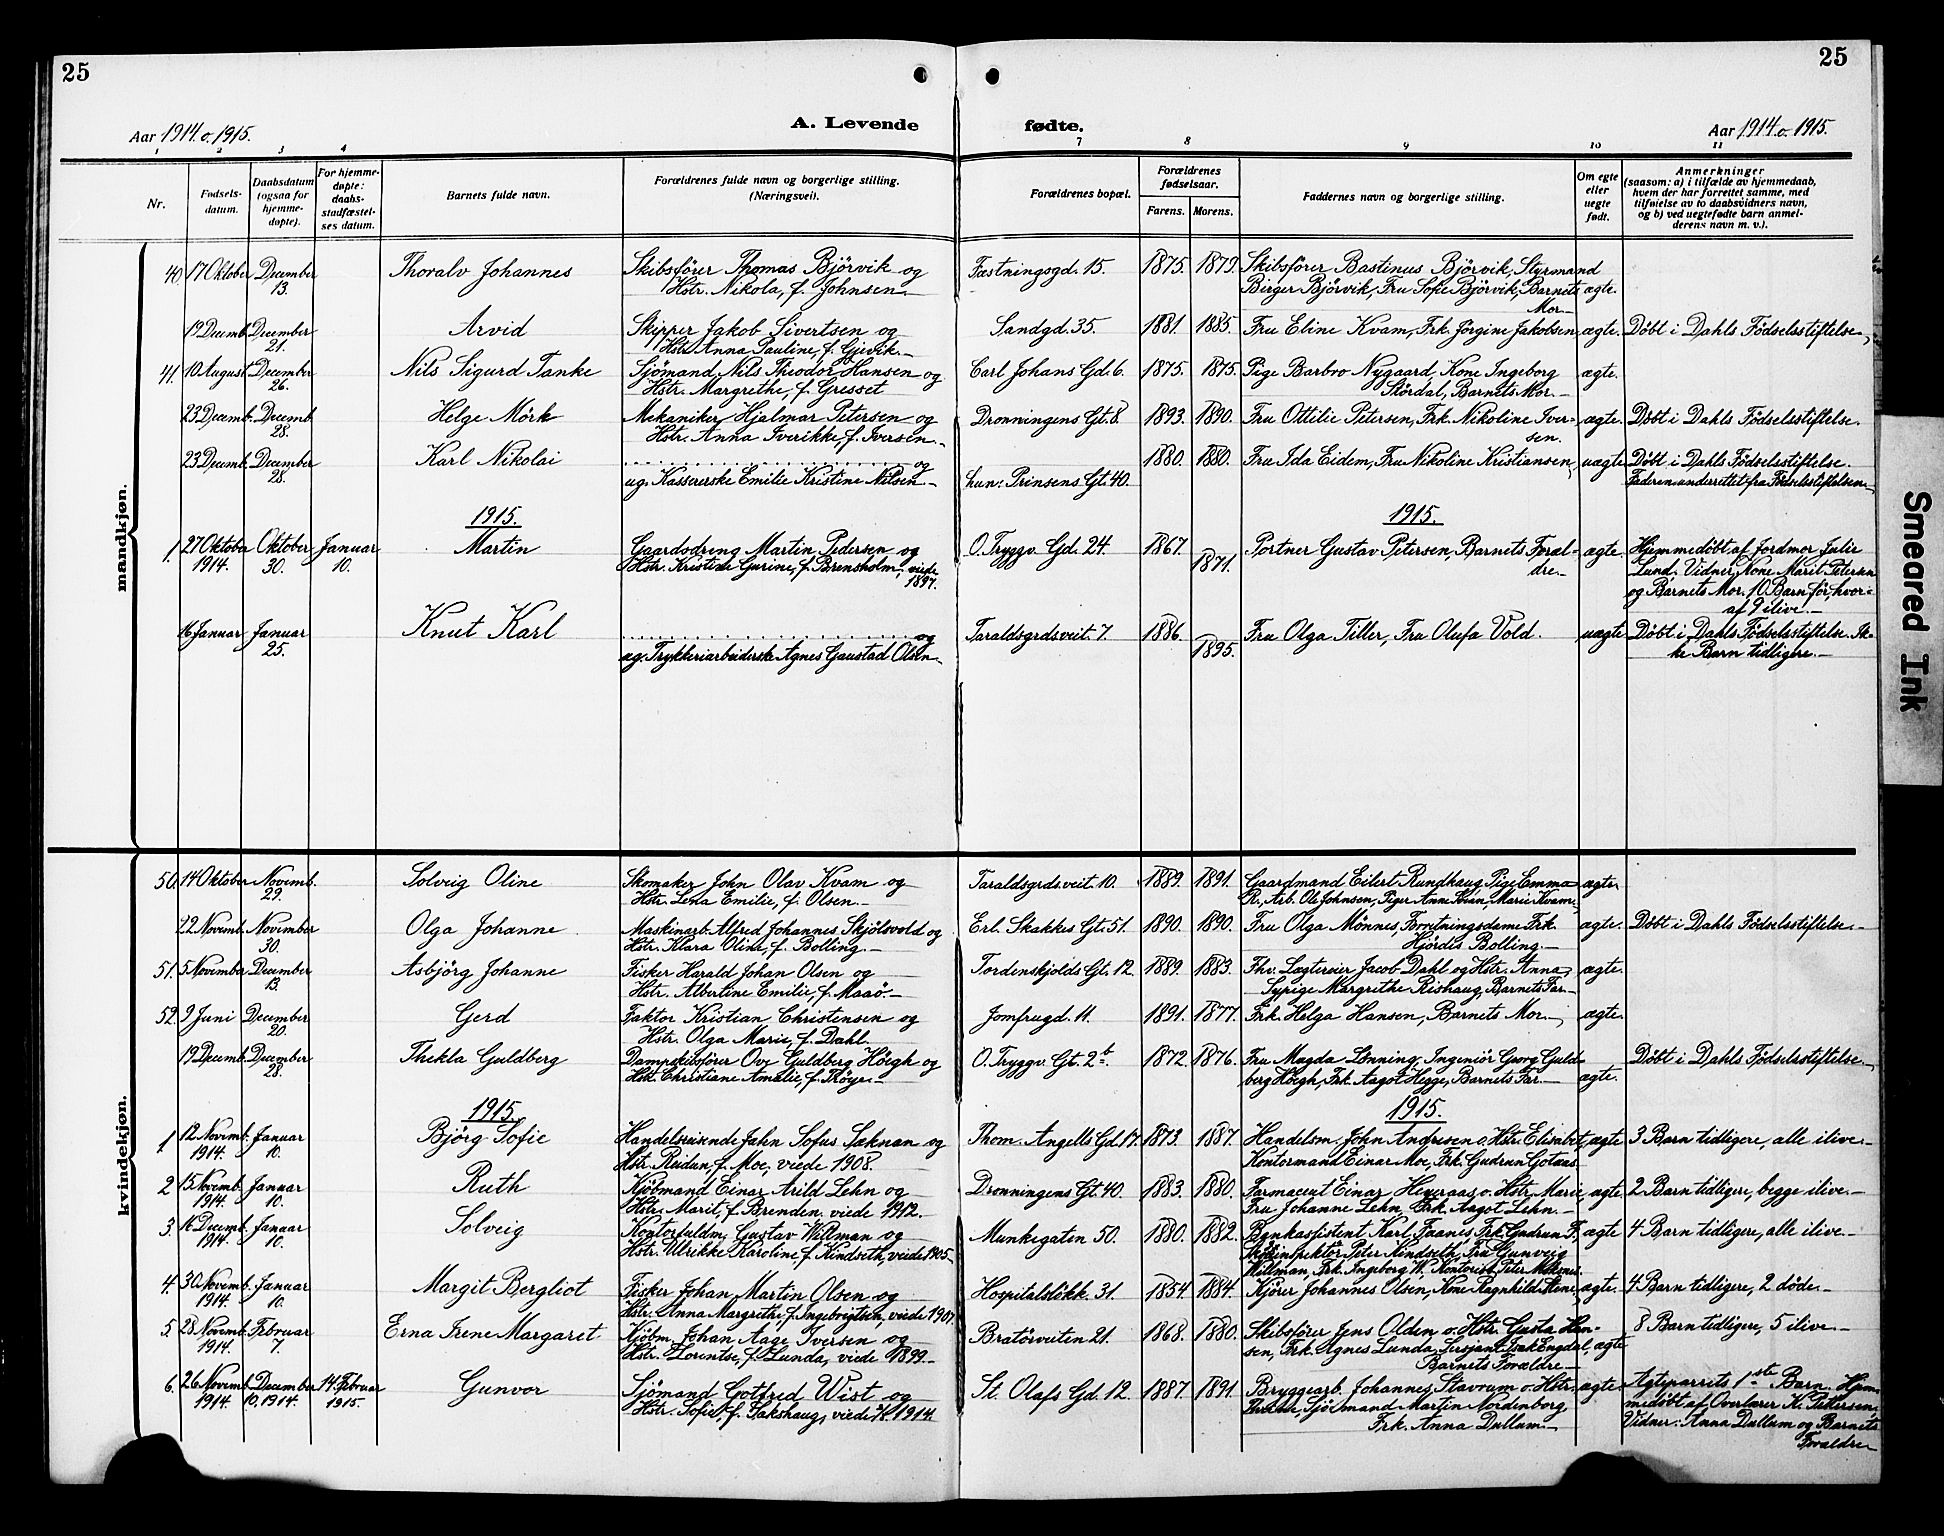 25
25
Aar 1914 o. 1915.
A. Levende
fødte.
Aar 1914 o. 1915.
1 2 3 4 7 8 9 10 11
Nr.
Fødsels-
datum.
Daabsdatum
(ogsaa for
hjemme-
døpte).
For hjemme-
døpte:
daabs-
stadfæstel-
ses datum.
Barnets fulde navn.
Forældrenes fulde navn og borgerlige stilling.
(Næringsvei).
Forældrenes bopæl.
Forældrenes
fødselsaar.
Farens. Morens.
Faddernes navn og borgerlige stilling.
Om egte
eller
uegte
født.
Anmerkninger
(saasom: a) i tilfælde av hjemmedaab,
hvem der har forrettet samme, med
tilføielse av to daabsvidners navn,
og b) ved uegtefødte barn anmel-
derens navn m. v.).
mandkjøn.
40. 17 Oktober December Thoralv Johannes Skibsfører Thomas Bjørvik og Fæstningsgd. 15. 1875. 1879. Skibsfører Bastinus Bjørvik, Styrmand
13. Hstr. Nikola, f. Johnsen. Birger Bjørvik, Fru Sofie Bjørvik, Barnets ægte.
Mor.
19 Decemb. December Arvid Skipper Jakob Sivertsen og Sandgd. 35. 1881. 1885. Fru Eline Kvam, Frk. Jørgine Jakobsen, ægte. Døbt i Dahls Fødselsstiftelse.
21. Hstr. Anna Pauline, f. Gjevik.
41. 10 August December Nils Sigurd Tanke Sjømand Nils Theodor Hansen og Carl Johans Gd. 6. 1875. 1875. Pige Barbro Nygaard Kone Ingeborg ægte.
26. Hstr. Margrethe, f. Gresset Stördal, Barnets Mor.
23 Decemb. Decemb. Helge Mörk Mekaniker Hjalmar Petersen og Dronningens Gt. 8. 1893. 1890. Fru Ottilie Petersen, Frk. Nikoline Iver- ægte. Døbt i Dahls Fødselsstiftelse.
28. Hstr. Anna Fverikke, f. Iversen. sen.
23 Decemb. December Karl Nikolai og 1880. 1880. Fru Ida Eidem, Fru Nikoline Kristiansen, uægte Døbt i Dahls Fødselsstiftelse.
28. ug. Kassererske Emilie Kristine Nilsen hun: Prinsens Gt. 40. Faderen underrettet fra Fødselsstiftelsen.
1915. 1915.
1. 27 Oktober Oktober Januar Martin Gaardsdreng Martin Pedersen og O. Tryggv. Gd. 24. 1867. Portner Gustav Petersen, Barnets Foræl- ægte. Hjemmedøbt af Jordmor Julie
1914. 30. 10. Hstr. Kristine Gurine, f. Brensholm, viede 1871. dre. Lund. Vidner, Kone Marit Petersen
1897. og Barnets Mor. 10 Barn før, hvor-
af 9 ilive.
16 Januar Januar Knut Karl og Taraldsgrdsveit. 7. 1886. Fru Olga Tiller, Fru Olufa Vold. uægte Døbt i Dahls Fødselsstiftelse. Ik-
25. ug. Trykkeriarbeiderske Agnes Gaustad Olsen 1895. ke Barn tidligere.
kvindekjøn.
50. 14 Oktober Novemb. Solveig Oline Skomaker John Olav Kvam og Taraldsgrdsveit. 10. 1889. 1891. Gaardmand Eilert Rundhaug, Pige Emma ægte.
29. Hstr. Lena Emilie, f. Olsen. R., Arb. Ole Johnsen, Piger Anne Marie Kvam.
22 Novemb. November Olga Johanne Maskinarb. Alfred Johannes Skjölsvold og Erl. Skakkes Gt. 51. 1890. 1890. Fru Olga Mönnes, Forretningsdame Frk. ægte. Døbt i Dahls Fødselsstiftelse.
30. Hstr. Klara Oline, f. Bolling. Hjördis Bolling.
51. 5 November December Asbjörg Johanne Fisker Harald Johan Olsen og Tordenskjolds Gt. 12. 1889. 1883. Fhv. Lægtereier Jacob Dahl og Hstr. Anna, ægte.
13. Hstr. Albertine Emilie, f. Maaö. Sypige Margrethe Rishaug, Barnets Far.
52. 9 Juni December Gerd Faktor Kristian Christensen og Jomfrugd. 11. 1891. 1877. Frk. Helga Hansen, Barnets Mor. ægte.
20. Hstr. Olga Marie, f. Dahl.
19 Decemb. December Thekla Guldberg Dampskibsfører Ove Guldberg Höigh og O. Tryggv. Gt. 2b. 1872. 1876. Fru Magda Lønning, Ingeniör Georg Guld- Døbt i Dahls Fødselsstiftelse.
28. Hstr. Christiane Amalie, f. Thöger. berg Höigh, Frk. Aagot Hegge, Barnets Far. ægte.
1915. 1915.
1 12 Novemb. Januar Björg Sofie Handelsreisende John Sofus Sæknan og Thom. Angells Gd. 17. 1873. 1887. Handelsm. John Andresen o. Hstr. Elisabet, ægte 3 Barn tidligere, alle ilive.
1914. 10. Hstr. Reidun, f. Moe, viede 1908. Kontormand Einar Moe, Frk. Gudrun Gotaas.
2 15 Novemb. Januar Ruth Kjöbmand Einar Arild Lehn og Dronningens Gt. 40. 1883. 1880. Farmaceut Einar Heyeraas o. Hstr. Marie, ægte 2 Barn tidligere, begge ilive.
1914. 10. Hstr. Marit, f. Brenden, viede 1912. Fru Johanne Lehn, Frk. Aagot Lehn.
3. 16 Decemb. Januar Solveig Kontorfuldm. Gustav Willman og Munkegaten 50. 1880. 1882. Bankassistent Karl Faanes, Frk. Gudrun F. ægte 4 Barn tidligere, alle ilive.
1914. 10. Hstr. Ulrikke Karoline, f. Kindseth, viede 1905. Skoginspektör Peter Kindseth, Fru Gunveig
Willman, Frk. Ingeborg W. Kontorist Peter
4. 30 Novemb. Januar Margit Bergliot Fisker Johan Martin Olsen og Hospitalslökk. 31. 1854. 1884. Kjører Johannes Olsen, Kone Ragnhild Stene, ægte. 4 Barn tidligere, 2 döde.
1914. 10. Hstr. Anna Margrethe, f. Ingebrigtsen, viede 1907.
5. 28 Novemb. Februar Erna Irene Margaret Kjöbm. Johan Aage Iversen og Bratörveiten 21. 1868. 1880. Skibsfører Jens Olden o. Hstr. Gusta Han- 8 Barn tidligere, 5 ilive.
1914. 7. Hstr. Lorentse, f. Lunda, viede 1899. sen, Frk. Agnes Lunda, Sersjant Isak Engdal, ægte
Barnets Forældre.
6. 26 Novemb. December 14. Februar Gunvor Sjömand Gotfred Wist og St. Olafs Gd. 12. 1887 1891. Bryggearb. Johannes Stavrum o. Hstr. ægte. Ægteparrets 1ste Barn. Hjem-
1914. 10. 1914. 1915. Hstr. Sofie, f. Sakshaug, viede 1914. Sjömand Martin Nordenborg medøbt af Overlærer K. Pettersen.
Frk. Anna Dullum. Vidner: Anna Dullum og Barnets
Forældre
Smeared Ink